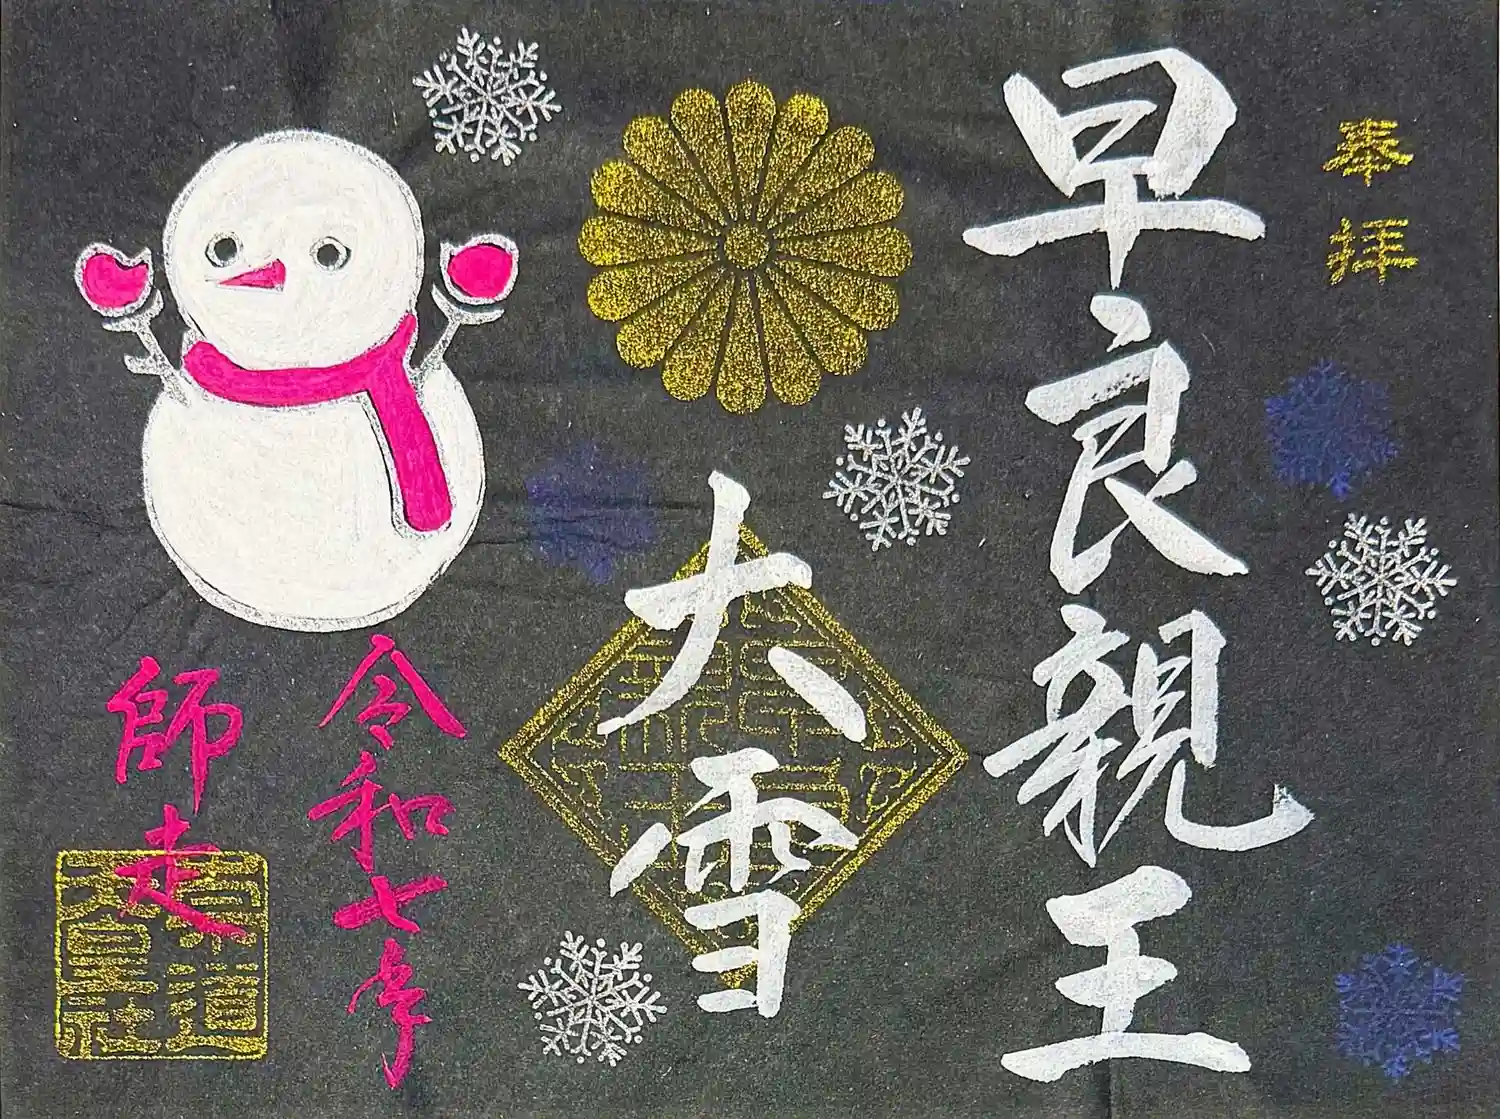 奉拝
早良親王
大雪
令和七年
師走
崇道天皇社